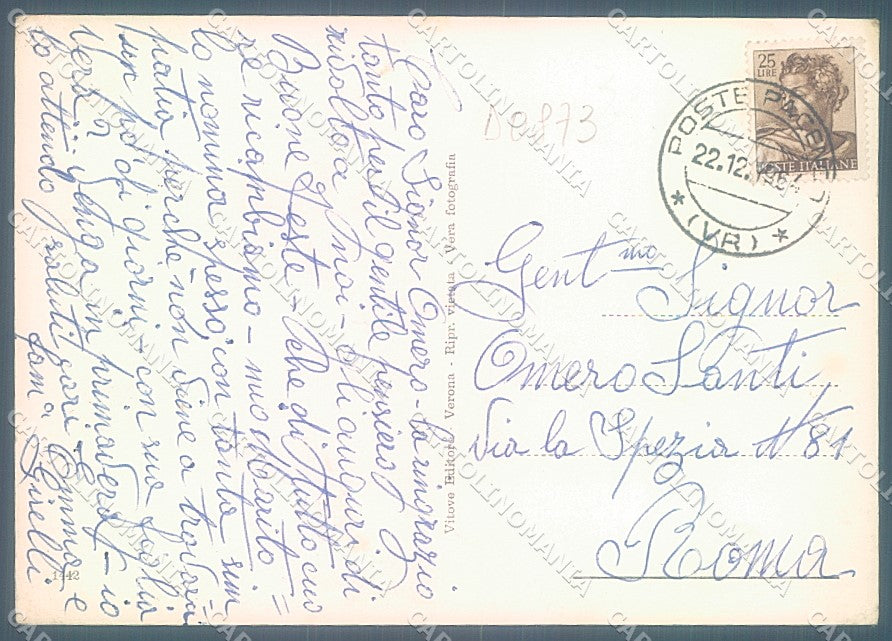 Caro Signor Omero - La ringrazio
tanto per il gentile pensiero
rivolto a noi - Gli auguri di
Buone Feste che di tutto cuo
re ricambiamo - mio Marito =
lo nomina spesso, con tanta sim
patia perche non viene a trovarci
un po' di giorni - con sua foglia
verdi - Venga in primavera - io
lo attendo saluti cari Emma e
fam. Girelli
Vitove Editore - Verona - Ripr. vietata - Vera fotografia
1442
D09873
25
LIRE
POSTE ITALIANE
POSTE
22.12.196
(VR)
Gent.mo Signor
Omero Santi
Via la Spezia N° 81
Roma
CARTOLINOMANIA